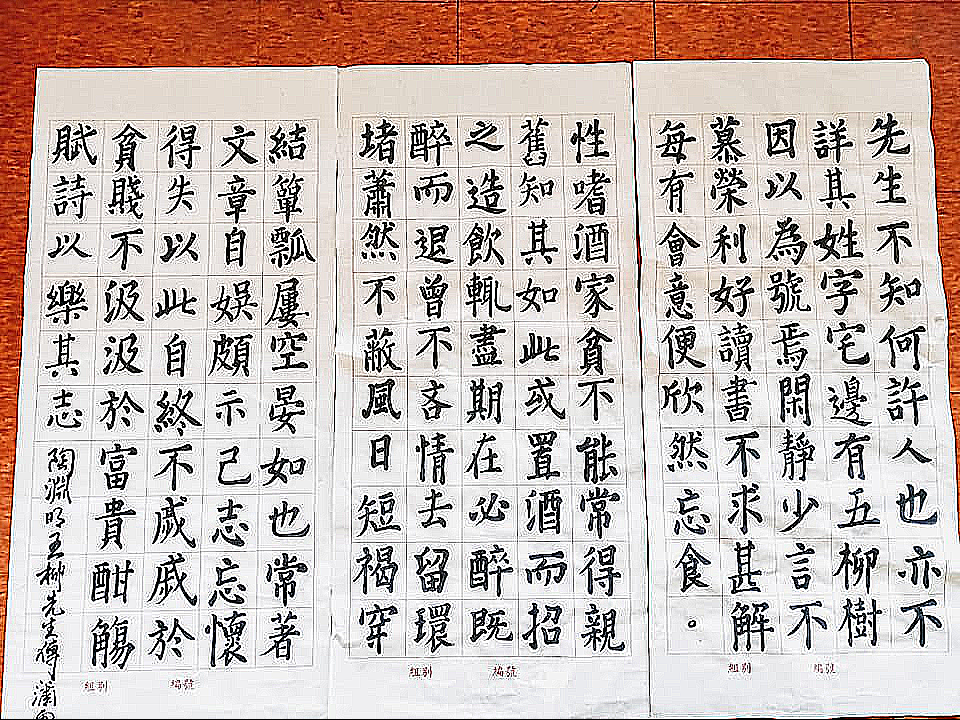 先生不知何許人也亦不
詳其姓字宅邊有五柳樹
因以為號焉閑靜少言不
慕榮利好讀書不求甚解
每有會意便欣然忘食。
組別 編號
性嗜酒家貧不能常得親
舊知其如此或置酒而招
之造飲輒盡期在必醉既
醉而退曾不吝情去留環
堵蕭然不蔽風日短褐穿
組別 編號
結簞瓢屢空晏如也常著
文章自娛頗示己志忘懷
得失以此自終不戚戚於
貧賤不汲汲於富貴酣觴
賦詩以樂其志
陶淵明五柳先生傳
組別 編號